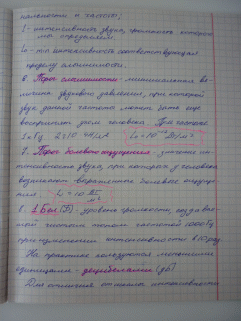 I - интенсивность звука, громкость которого
мы определяем.
I₀ - это интенсивность соответствующая
порогу слышимости.
6. Порог слышимости - минимальная ве-
личина звукового давления, при которой
звук данной частоты может быть еще
воспринят ухом человека. При частоте
7. Порог болевого ощущения - значение ин-
тенсивности звука, при которых у человека
возникают выраженные болевые ощуще-
ния.
8. 1 Бел (Б) уровень громкости, создавае-
мой чистым тоном частотой 1000 Гц
при изменении интенсивности в 10 раз.
На практике пользуются меньшими
единицами - децибелами (дБ)
Для отличия от шкалы интенсивности